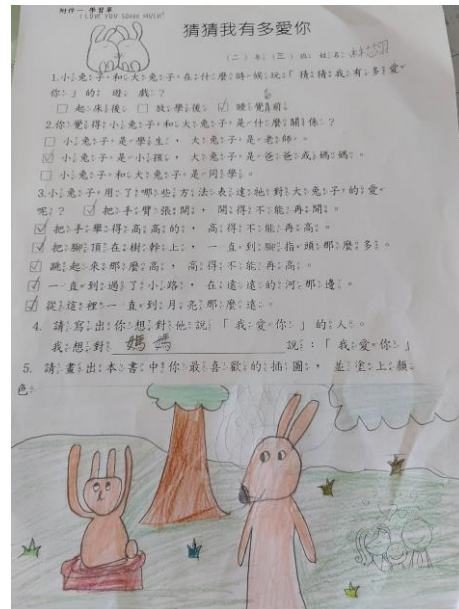 附件一 學習單
I LOVE YOU SOOOO MUCH
猜猜我有多愛你
(二) 年 (三) 班 姓名:
1.小兔子和大兔子在什麼時候玩「猜猜我有多愛
你」的 遊 戲?
□ 起床後 □ 放學後 ☑ 睡覺前
2.你覺得小兔子和大兔子是什麼關係?
□ 小兔子是學生, 大兔子是老師。
☑ 小兔子是小孩, 大兔子是爸爸或媽媽。
□ 小兔子和大兔子是同學。
3.小兔子用了哪些方法表達牠對大兔子的愛
呢? ☑ 把手臂張開, 開得不能再開。
☑ 把手舉得高高的, 高得不能再高。
☑ 把腳頂在樹幹上, 一直到腳指頭那麼多。
☑ 跳起來那麼高, 高得不能再高。
☑ 一直到過了小路, 在遠遠的河那邊。
☑ 從這裡一直到月亮那麼遠。
4. 請寫出你想對他說「我愛你」的人。
我想對 媽媽 說:「我愛你」
5. 請畫出本書中你最喜歡的插圖, 並塗上顏
色